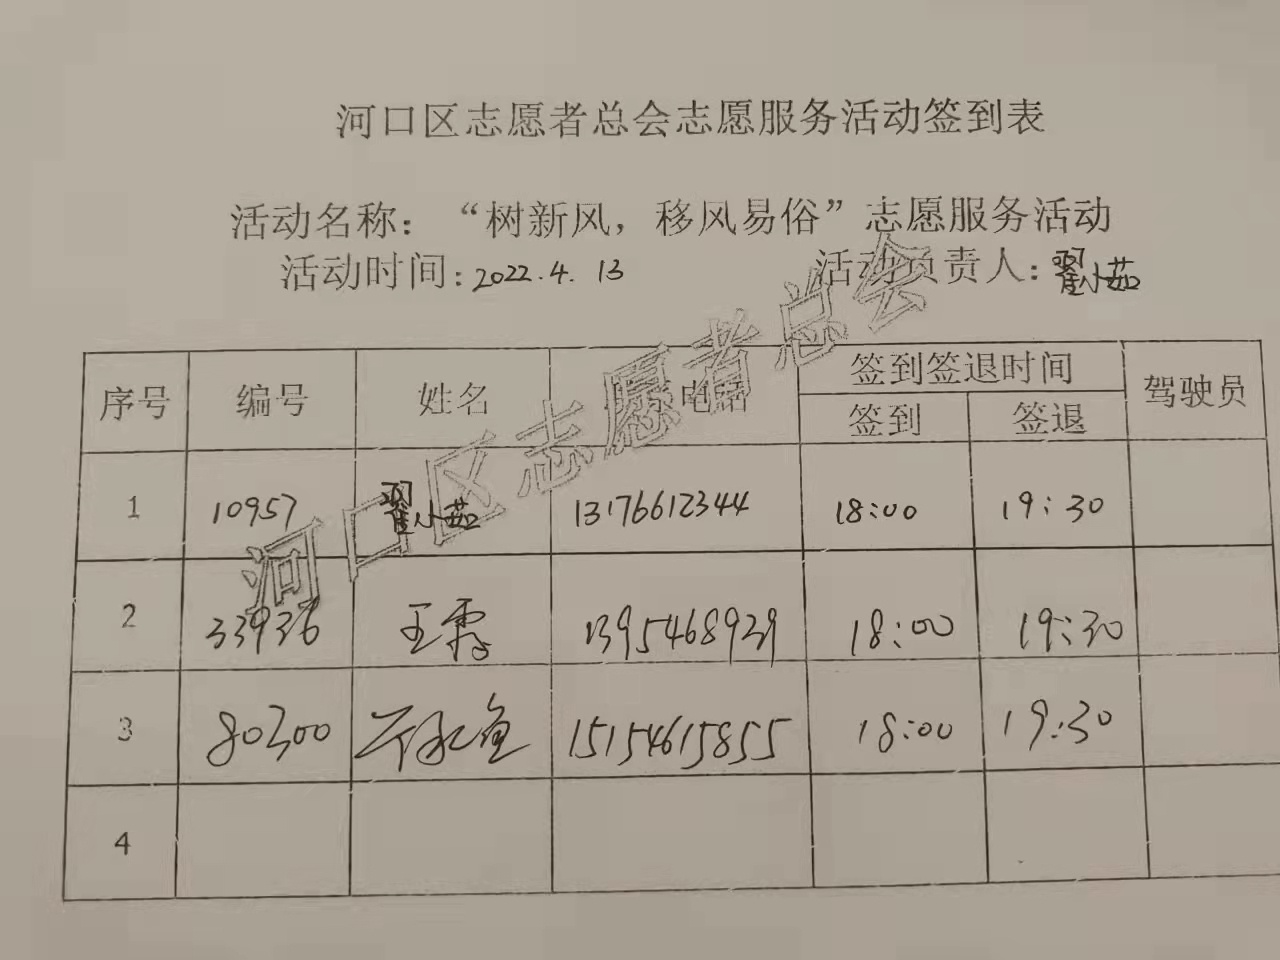 河口区志愿者总会志愿服务活动签到表
活动名称：“树新风，移风易俗”志愿服务活动
活动时间：2022.4.13 活动负责人：翟小茹
序号 编号 姓名 电话 签到签退时间 驾驶员
签到 签退
1 10957 翟小茹 13176612344 18:00 19:30
2 33936 王霞 13954689239 18:00 19:30
3 80300 15154615855 18:00 19:30
4
河口区志愿者总会